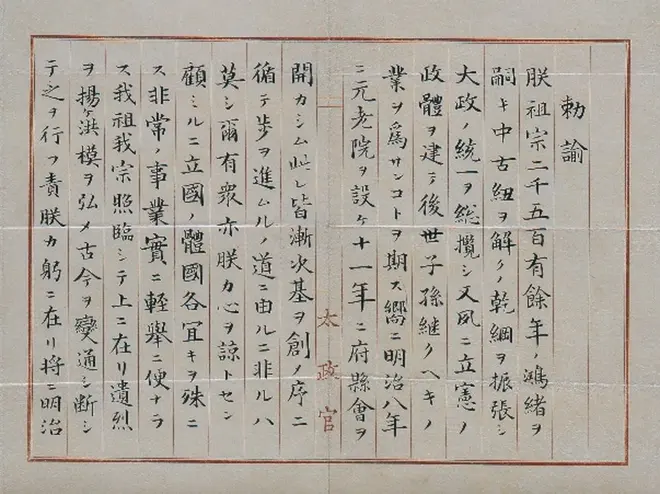 勅諭
朕祖宗二千五百有餘年ノ鴻緒ヲ
嗣キ中古紐ヲ解クノ乾綱ヲ振張シ
大政ノ統一ヲ総攬シ又夙ニ立憲ノ
政體ヲ建テ後世子孫継クヘキノ
業ヲ為サンコトヲ期ス嚮ニ明治八年
ニ元老院ヲ設ケ十一年ニ府縣會ヲ
太政官
開カシム此レ皆漸次基ヲ創ノ序ニ
循テ歩ヲ進ムルノ道ニ由ルニ非ルハ
莫シ爾有衆亦朕カ心ヲ諒トセン
顧ミルニ立國ノ體國各宜キヲ殊ニ
ス非常ノ事業實ニ軽舉ニ便ナラ
ス我祖我宗照臨シテ上ニ在リ遺烈
ヲ揚ケ洪模ヲ弘メ古今ヲ變通シ断シ
テ之ヲ行フ責朕カ躬ニ在リ将ニ明治